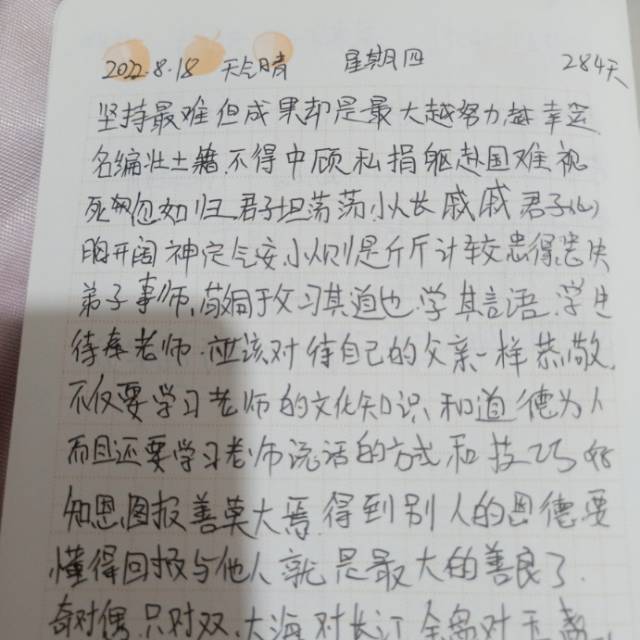 2022.8.18 天气晴 星期四 284天
坚持最难但成果却是最大越努力越幸运
名编壮士籍.不得中顾私捐躯赴国难视
死忽如归.君子坦荡荡,小人长戚戚君子心
胸开阔神定气安,小人则是斤斤计较患得患失
弟子事师,敬同于父习其道也.学其言语.学生
待奉老师.应该对待自己的父亲一样恭敬.
不仅要学习老师的文化知识和道德为人
而且还要学习老师说话的方式和技巧
知恩图报善莫大焉.得到别人的恩德要
懂得回报与他人就是最大的善良了.
奇对偶.只对双.大海对长江.金盘对玉